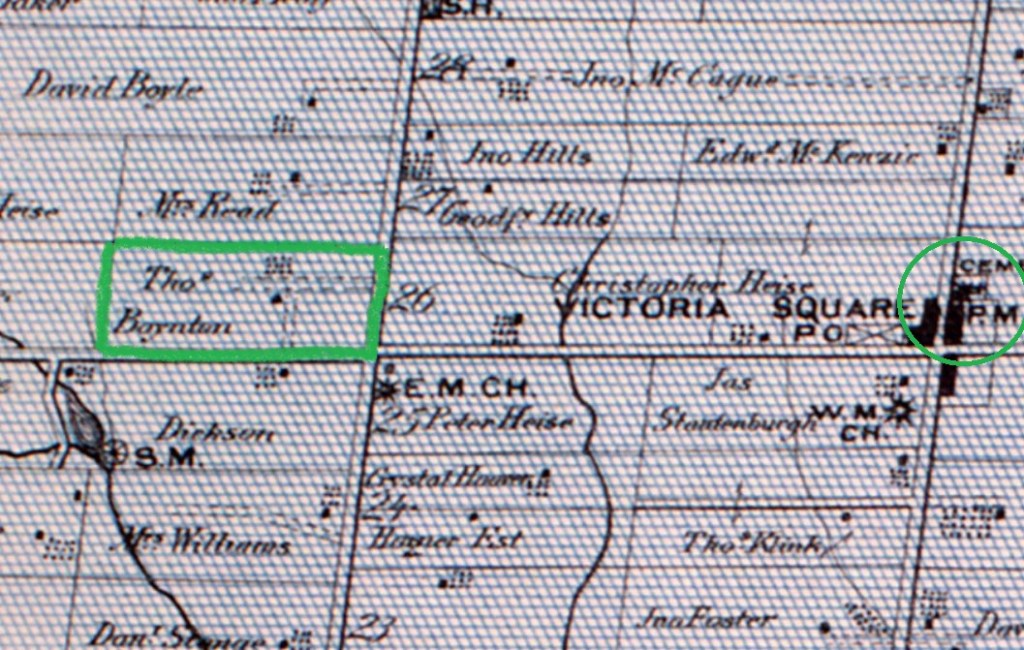 S.H.
David Boyle
28
Jno. Mc Cague
Jno Hills
Edwd. Mc Kenzie
27
Mrs Read
Heise
Goodfr. Hills
Thos
Boynton
26
Christopher Heise
VICTORIA SQUARE
P O
CEM
P.M.
E.M. CH.
25
Peter Heise
Jas
Stoutenburgh
W.M.
CH.
Dickson
S.M.
24
Homer Est
Mrs Williams
Thos Klink
23
Danl. Strange
Jno Foster
Dav